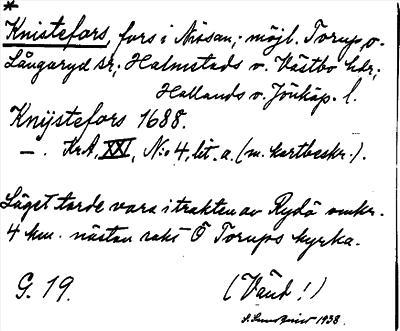 *
Knistefors, fors i Nissan, möjl. Torup o.
Långaryd sr; Halmstads o. Västbo hdr;
Hallands o. Jönköp. l.
Knÿstefors 1688.
—. KrA, XXI, N:o 4, lit. a. (m. kartbeskr.).
Läget torde vara i trakten av Rydö omkr.
4 km. nästan rakt Ö Torups kyrka.
G. 19.
(Vänd!)
1938.